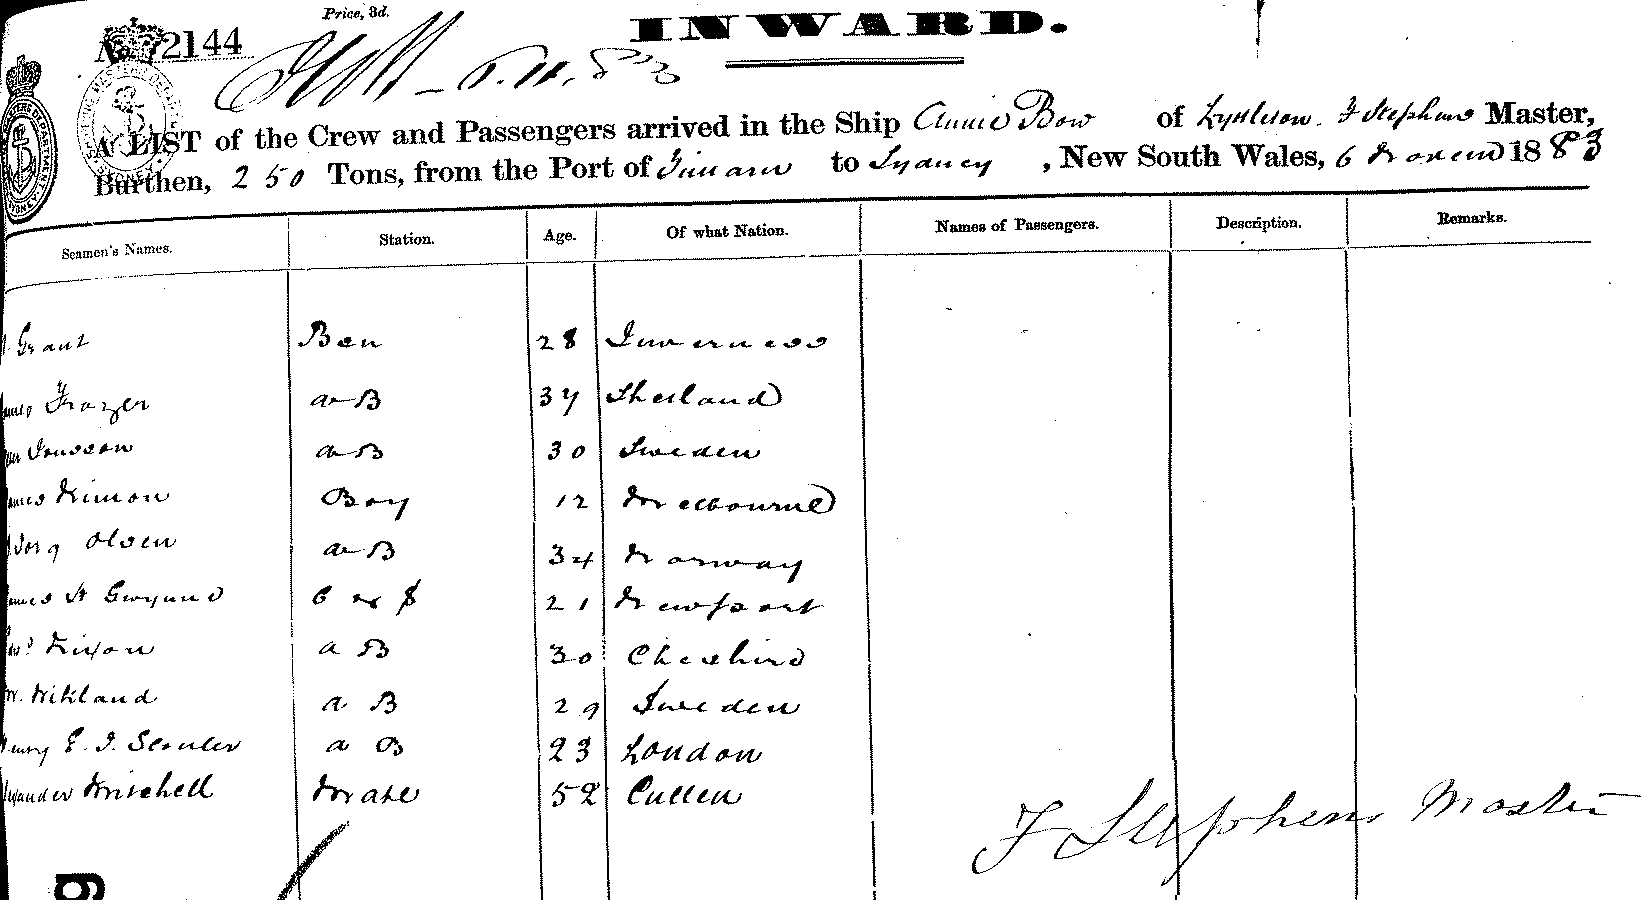 Price, 3d.
INWARD.
No 2144
6.11.83
A LIST of the Crew and Passengers arrived in the Ship Annie Bow of Lyttleton. F Stephens Master,
Burthen, 250 Tons, from the Port of Timaru to Sydney, New South Wales, 6 Novem 1883
Seamen's Names. Station. Age. Of what Nation. Names of Passengers. Description. Remarks.
Grant Bsn 28 Inverness
Frazer AB 37 Shetland
Jonsson AB 30 Sweden
Boy 12 Melbourne
Olsen AB 34 Norway
H Gwynne C & S 21 Newport
Nixon AB 30 Cheshire
Wikland AB 29 Sweden
E. J. AB 23 London
Mitchell Mate 52 Cullen
F Stephens Master
9